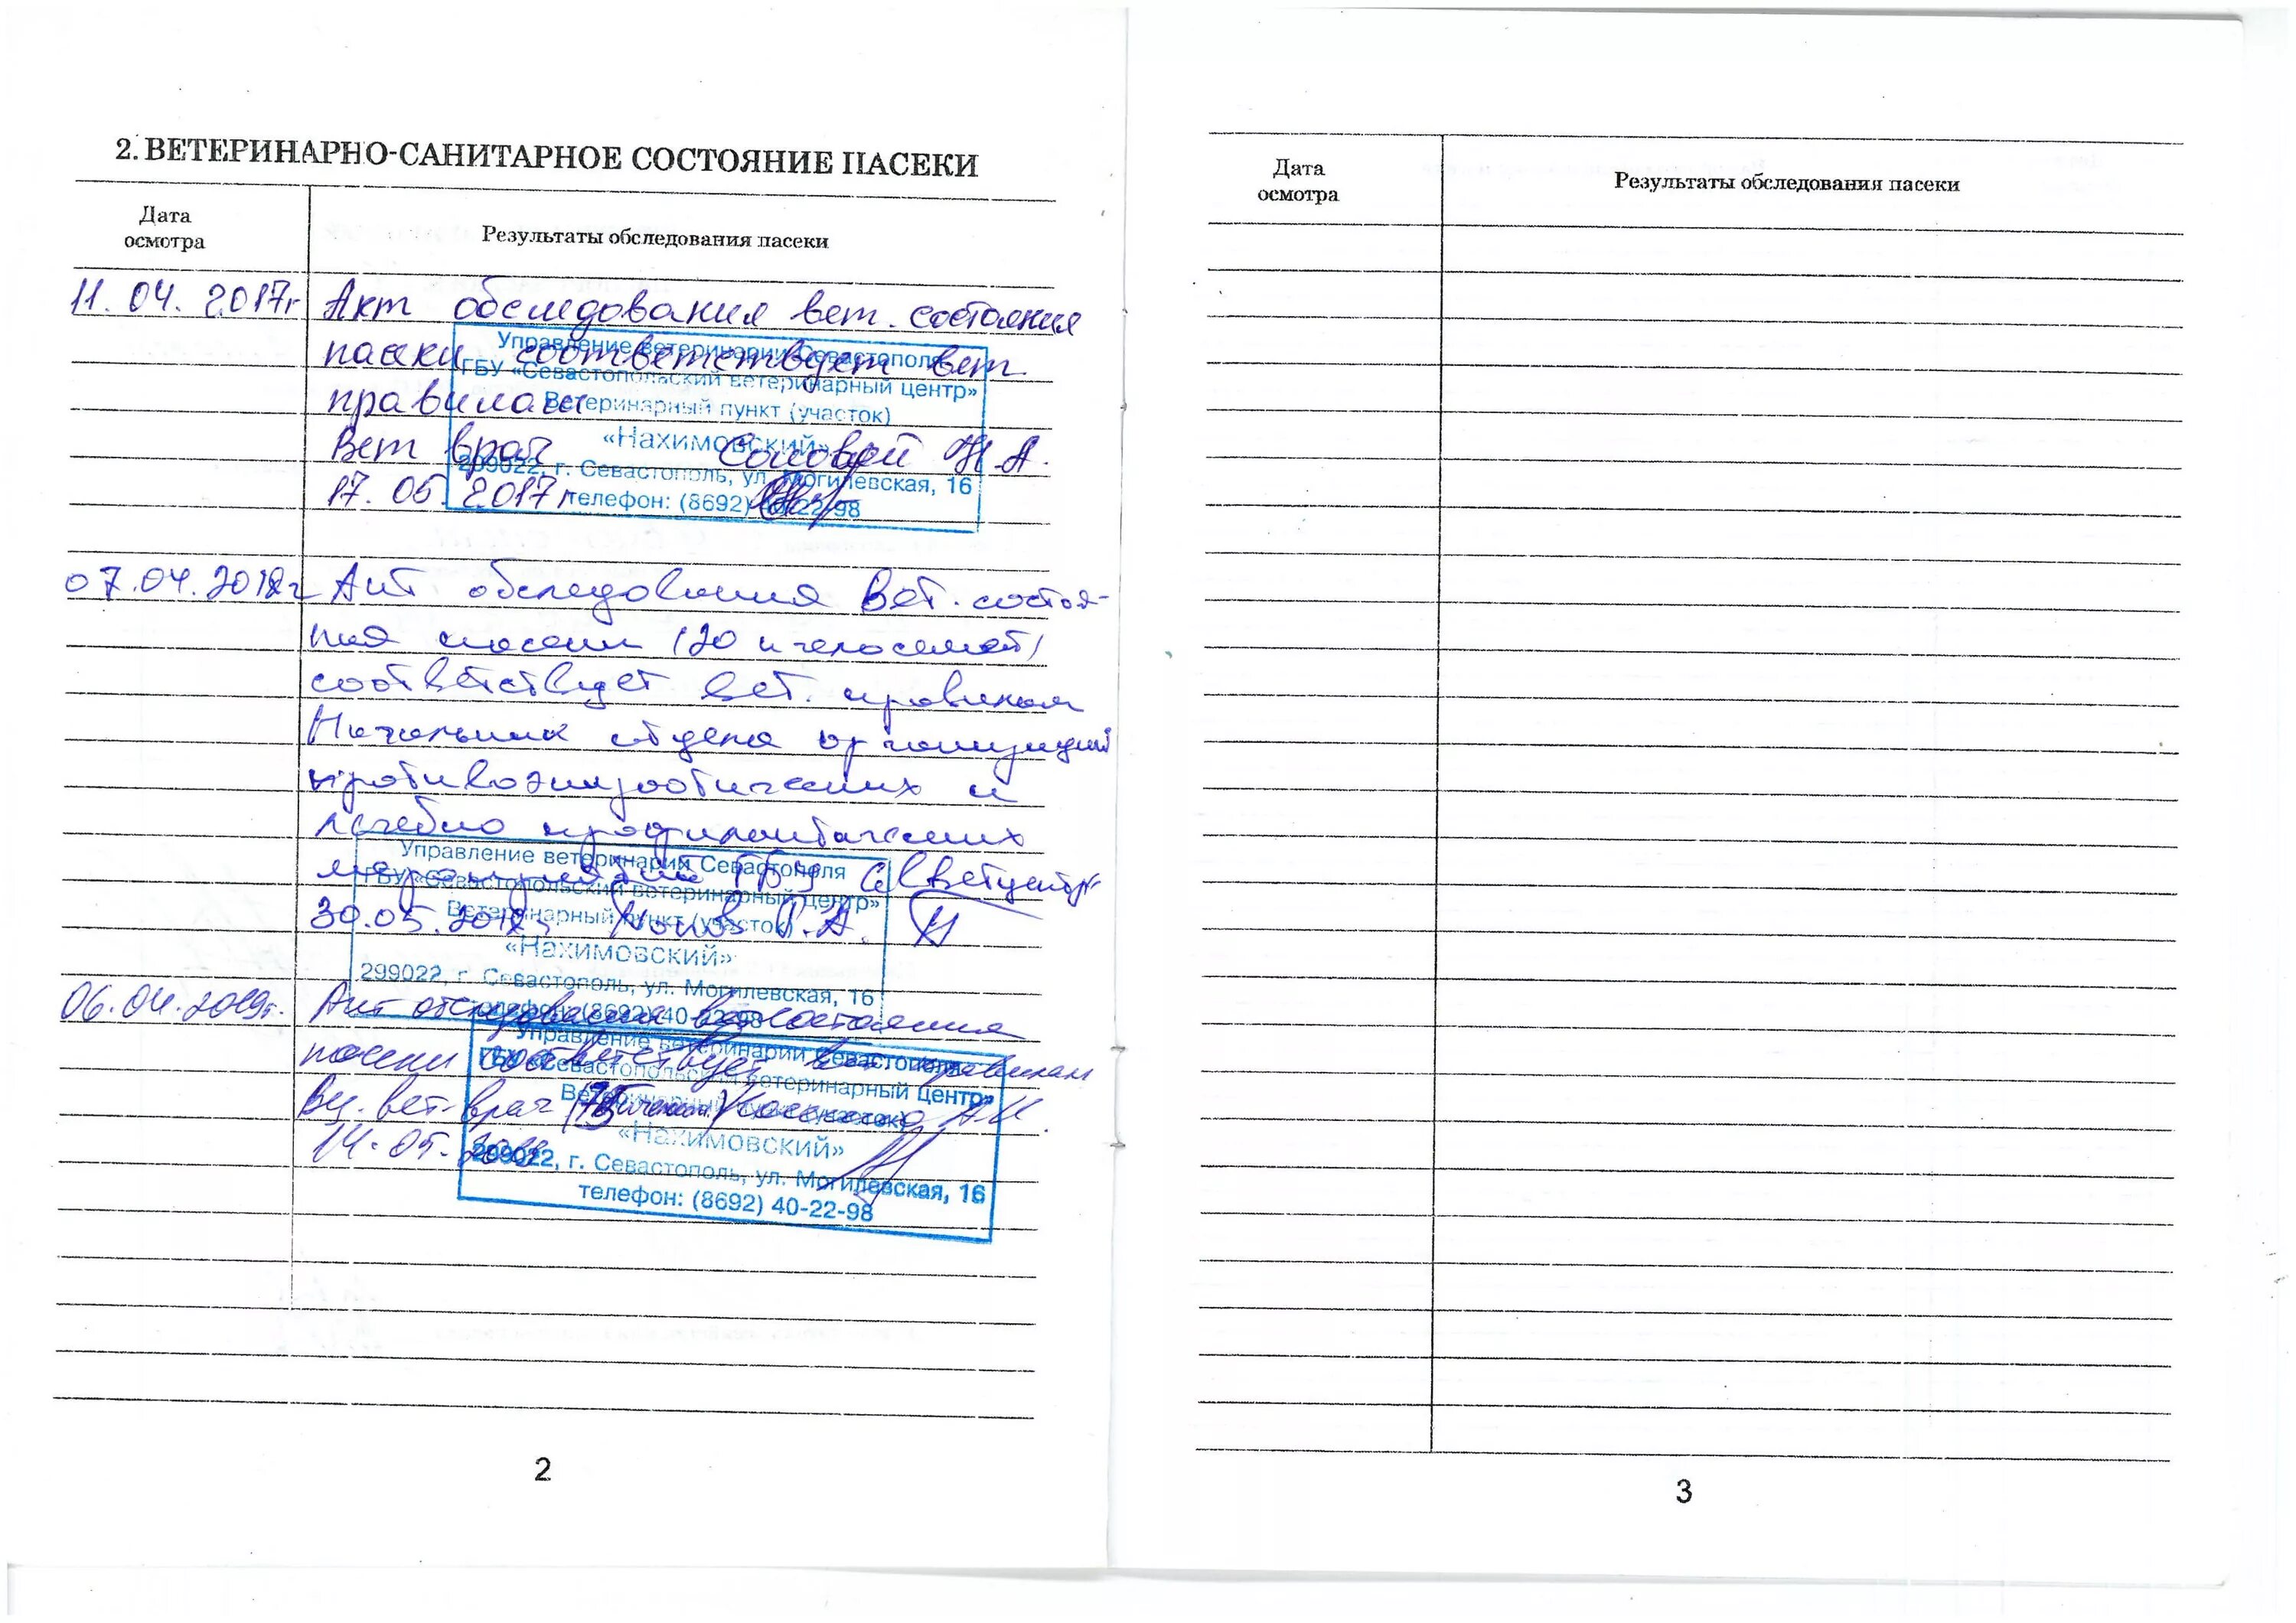 2. ВЕТЕРИНАРНО-САНИТАРНОЕ СОСТОЯНИЕ ПАСЕКИ
Дата осмотра
Результаты обследования пасеки
11.04.2017г Акт обследования вет. состояния
пасеки соответствует вет.
правилам
Вет врач Соловей Н.А.
17.05.2017г
Управление ветеринарии Севастополя
ГБУ «Севастопольский ветеринарный центр»
Ветеринарный пункт (участок)
«Нахимовский»
299022, г. Севастополь, ул. Могилевская, 16
телефон: (8692) 40-22-98
07.04.2018г Акт обследования Вет. состоя-
ния пасеки (20 пчелосемей)
соответствует вет. правилам
Начальник отдела организаций
противоэпизоотических и
лечебно профилактических
мероприятий ГБУ Сев ветцентр
30.05.2018г. П.А.
Управление ветеринарии Севастополя
ГБУ «Севастопольский ветеринарный центр»
Ветеринарный пункт (участок)
«Нахимовский»
299022, г. Севастополь, ул. Могилевская, 16
телефон: (8692) 40-22-98
06.04.2019г. Акт обследования вет состояния
пасеки соответствует вет правилам
Вед. вет. врач А.И.
14.05.2019
Управление ветеринарии Севастополя
ГБУ «Севастопольский ветеринарный центр»
Ветеринарный пункт (участок)
«Нахимовский»
299022, г. Севастополь, ул. Могилевская, 16
телефон: (8692) 40-22-98
2
Дата осмотра
Результаты обследования пасеки
3